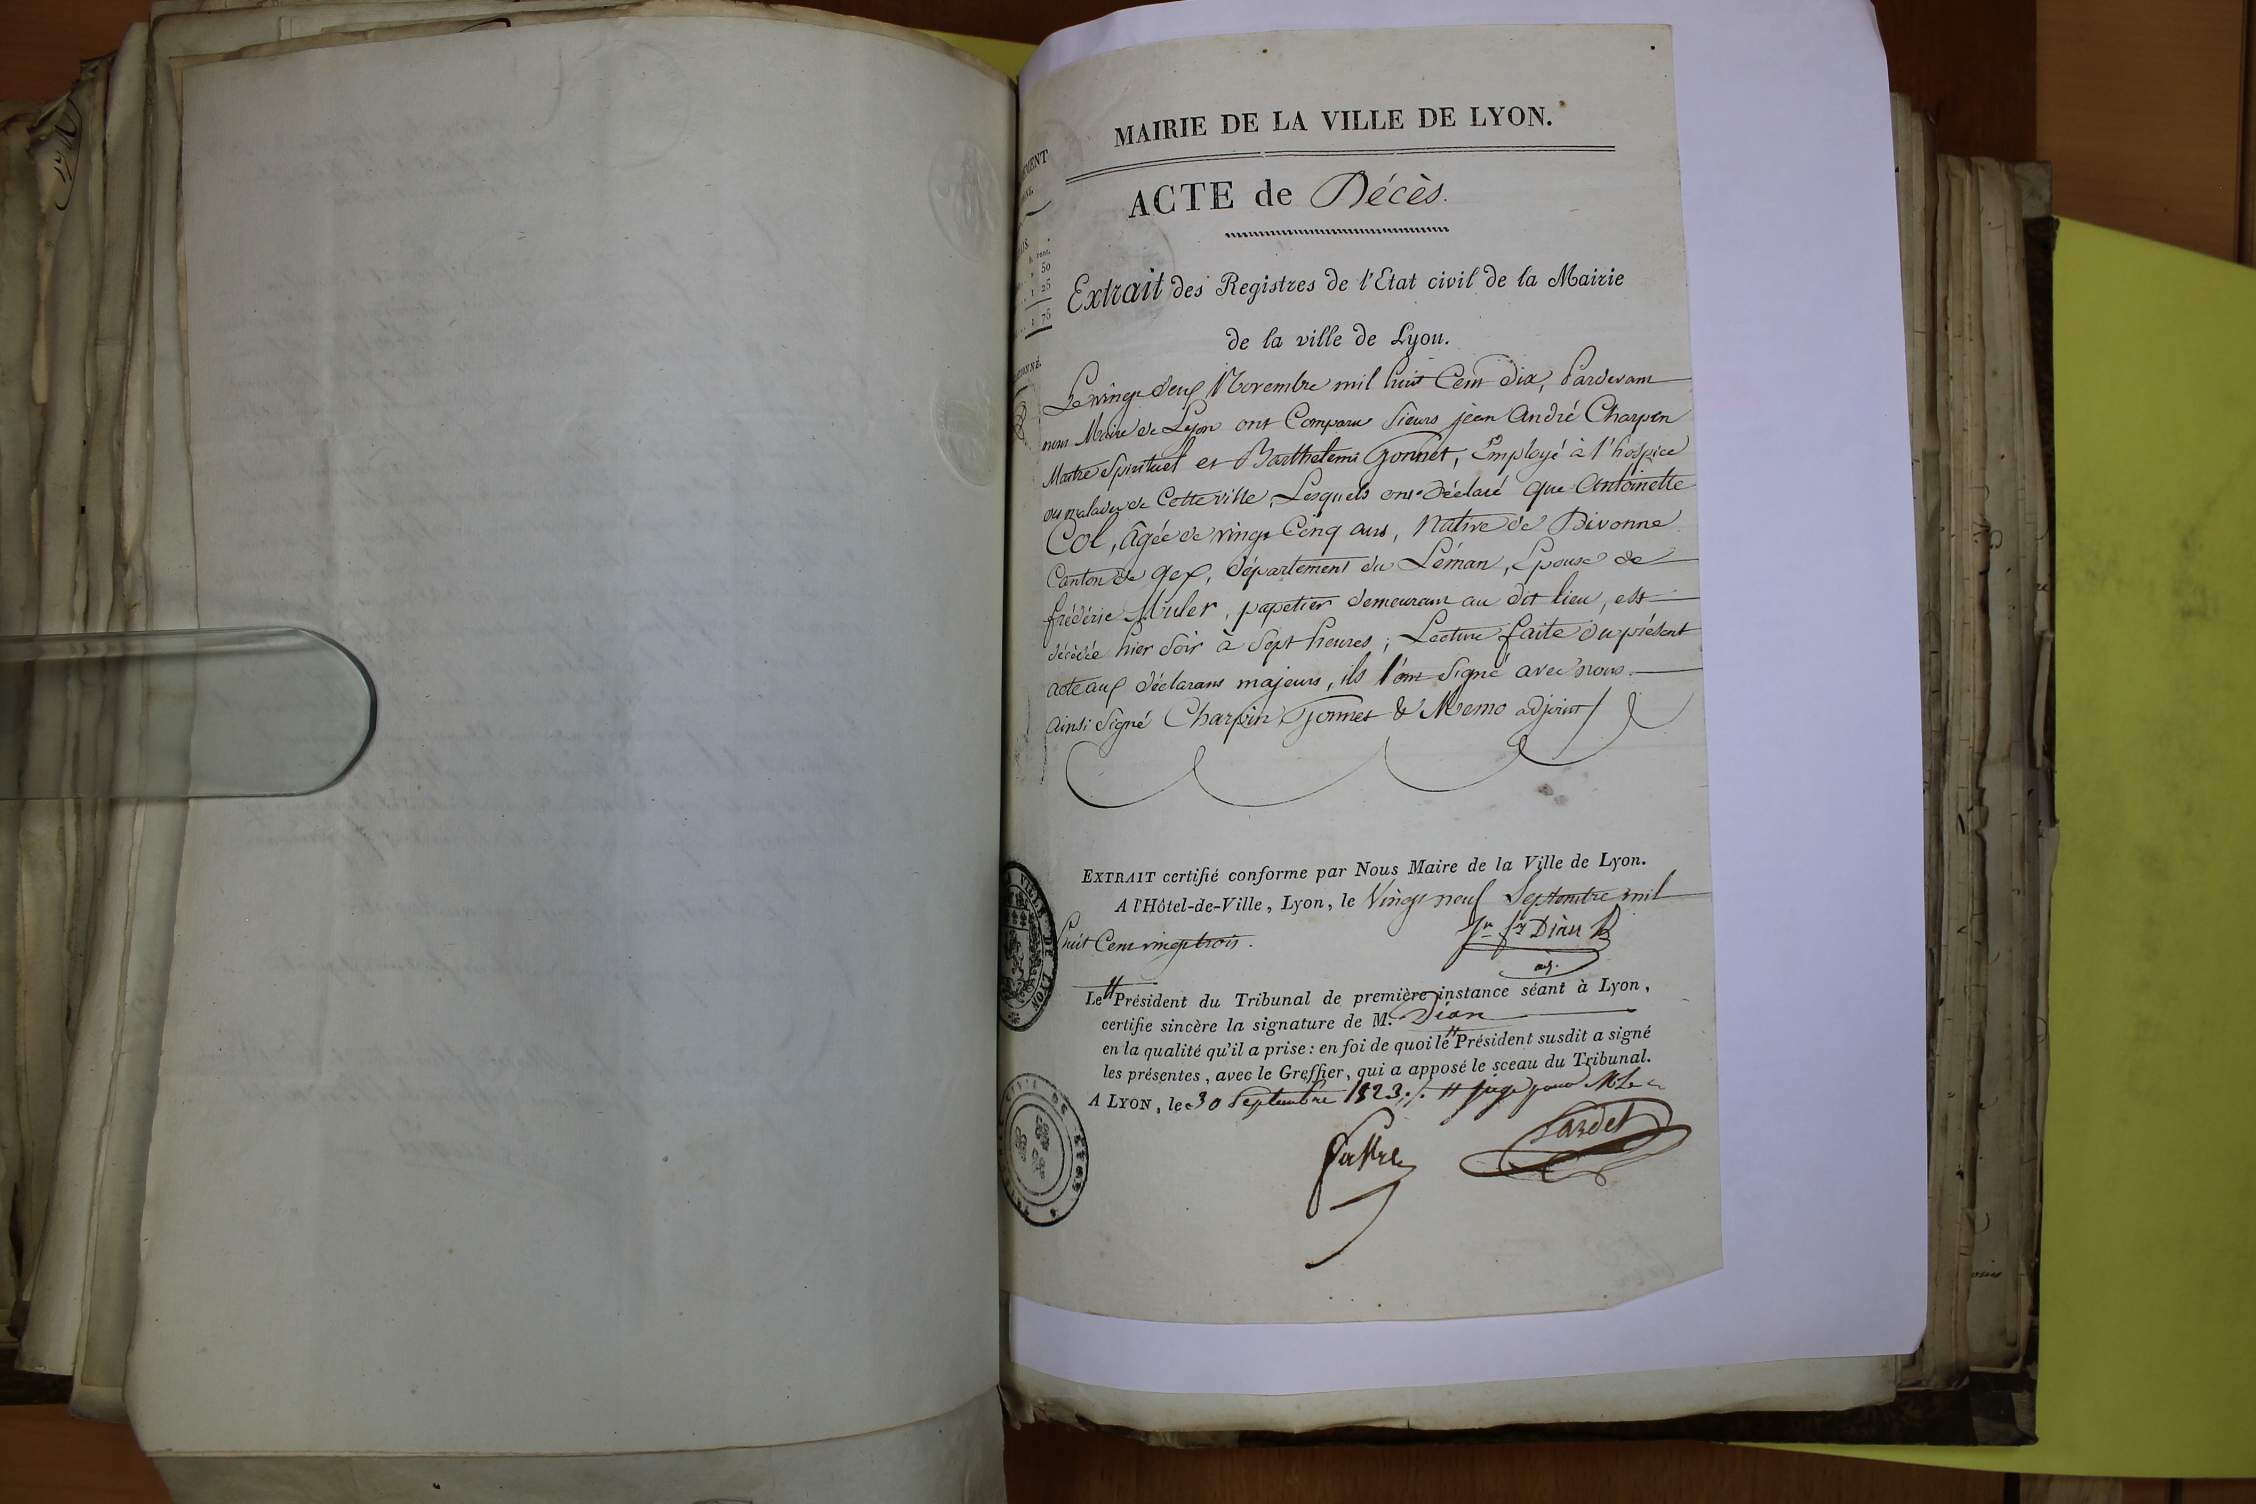 MAIRIE DE LA VILLE DE LYON.
ACTE de Décès.
50
1 25
1 75
Extrait des Registres de l'Etat civil de la Mairie
de la ville de Lyon.
Le vingt deux Novembre mil huit Cent dix, Pardevant
nous Maire de Lyon ont Comparu Sieurs jean André Charpin
Maitre Spirituel et Barthelemi Gonnet, Employé à l'hospice
des malades de Cette ville, Lesquels ont déclaré que Antoinette
Col, âgée de vingt Cinq ans, Native de Divonne
Canton de Gex, département du Léman, Epouse de
frédéric Muler, papetier demeurant au dit lieu, est
décédée hier Soir à Sept heures; Lecture faite du présent
acte aux déclarans majeurs, ils l'ont Signé avec nous.
ainsi Signé Charpin Gonnet & Memo adjoint
EXTRAIT certifié conforme par Nous Maire de la Ville de Lyon.
A l'Hôtel-de-Ville, Lyon, le Vingt neuf Septembre mil
huit Cent vingt trois.
Dian
adj.
Le Président du Tribunal de première instance séant à Lyon,
certifie sincère la signature de M. Dian
en la qualité qu'il a prise: en foi de quoi le Président susdit a signé
les présentes, avec le Greffier, qui a apposé le sceau du Tribunal.
A LYON, le 30 Septembre 1823. juge pour M. Le
Lardet
VILLE DE LYON